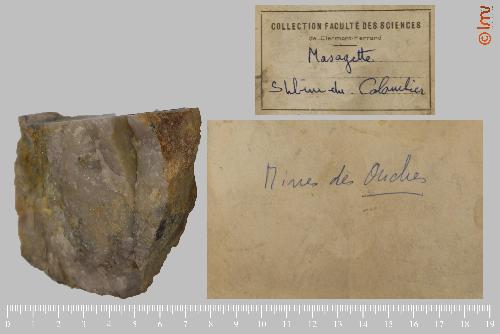 COLLECTION FACULTÉ DES SCIENCES
de Clermont-Ferrand
Masagette
Stibine du Colombier
Mines des Ouches
lmv
0 1 2 3 4 5 6 7 8 9 10 11 12 13 14 15 16 17 18 19